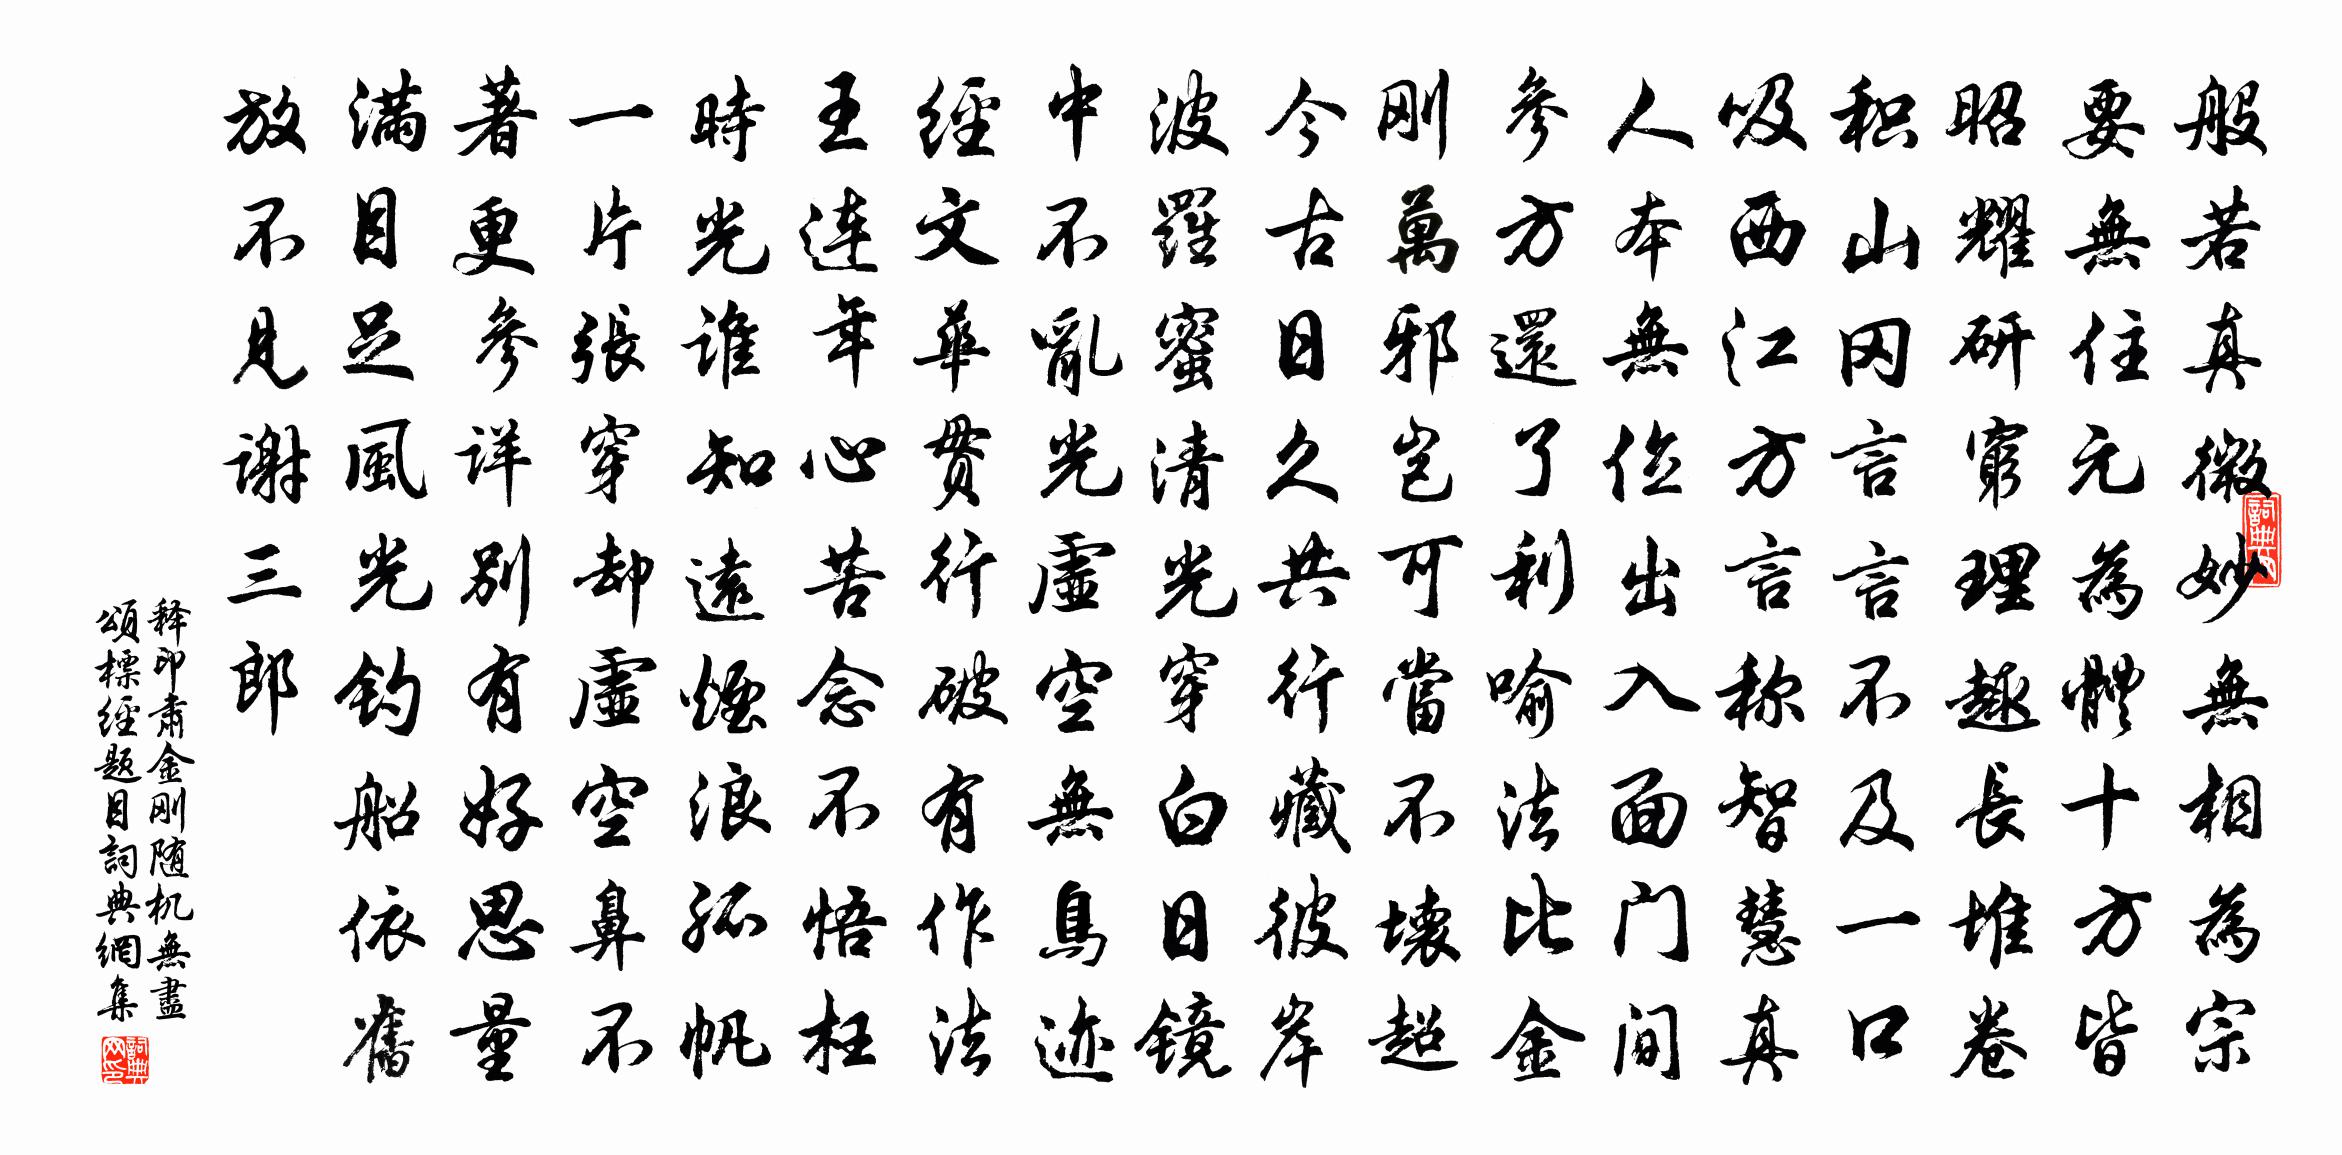 般若真微妙無相為宗
要無住元為體十方皆
昭耀研窮理趣長堆卷
积山罔言言不及一口
吸西江方言称智慧真
人本無位出入面门间
參方還了利喻法比金
刚萬邪岂可當不壞超
今古日久共行藏彼岸
波羅蜜清光穿白日镜
中不亂光虛空無鳥迹
經文華贯行破有作法
王连年心苦念不悟枉
時光谁知遠煙浪孤帆
一片張穿却虛空鼻不
著更參详别有好思量
满目足風光钓船依舊
放不見谢三郎
释印肃金刚随机無盡
頌標經题目詞典網集
詞典
詞典网